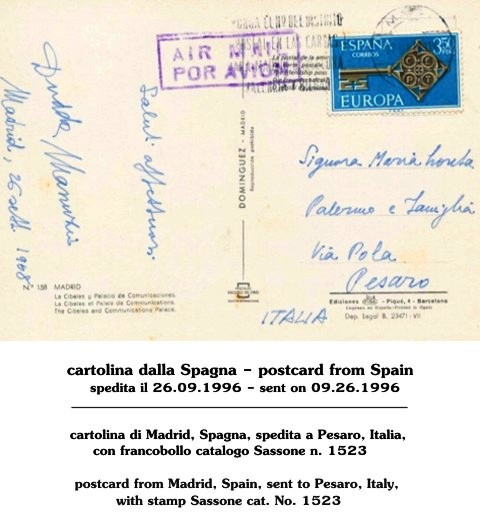 AIR MAIL
POR AVION
ESPAÑA
CORREOS
3'50
PTAS
EUROPA
Madrid, 26 sett. 1968
Saluti affettuosi
DOMINGUEZ - MADRID
Reproducción prohibida
Signora Maria Loreta
Palermo e Famiglia
Via Pola
Pesaro
ITALIA
N.º 158 MADRID
La Cibeles y Palacio de Comunicaciones.
La Cibeles et Palais de Communications.
The Cibeles and Communications Palace.
Ediciones - Piqué, 4 - Barcelona
Dep. Legal B. 23471 - VII
cartolina dalla Spagna – postcard from Spain
spedita il 26.09.1996 – sent on 09.26.1996
cartolina di Madrid, Spagna, spedita a Pesaro, Italia,
con francobollo catalogo Sassone n. 1523
postcard from Madrid, Spain, sent to Pesaro, Italy,
with stamp Sassone cat. No. 1523